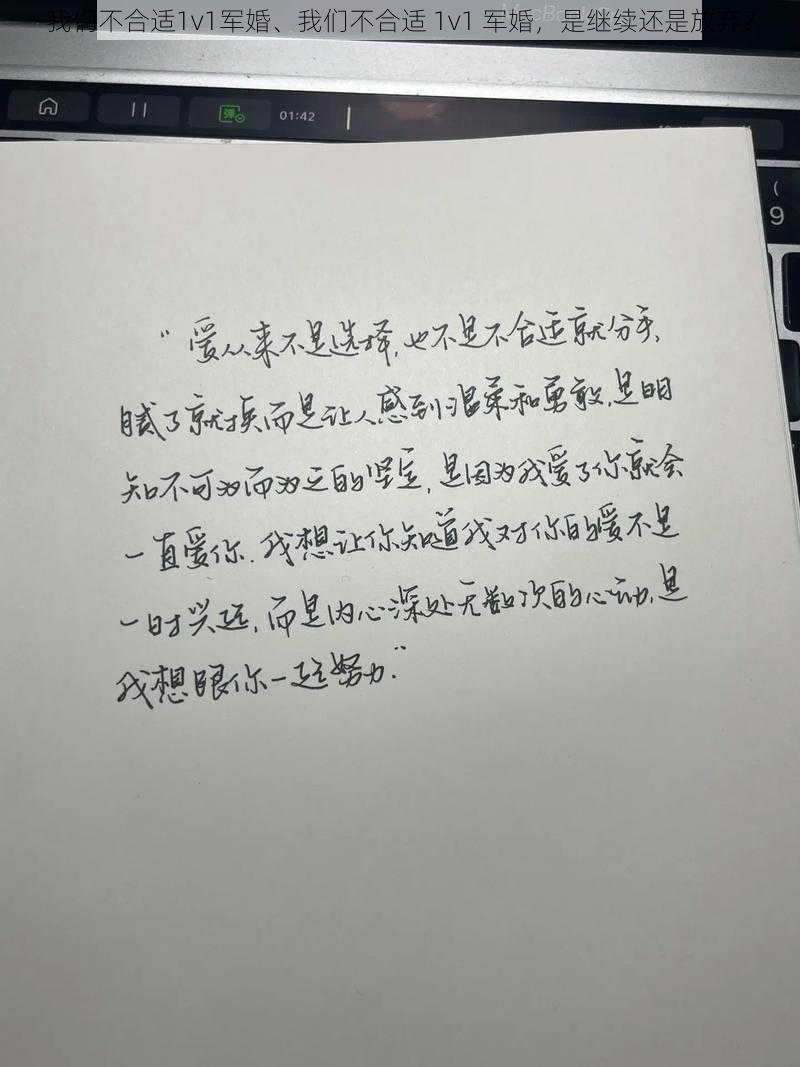 我们不合适1v1军婚、我们不合适 1v1 军婚，是继续还是放弃?
MacBook
弹
01:42
(
9
"爱从来不是选择,也不是不合适就分手,
腻了就换而是让人感到温柔和勇敢,是明
知不可为而为之的坚定,是因为我爱了你就会
一直爱你.我想让你知道我对你的爱不是
一时兴起,而是内心深处无数次的心动,是
我想跟你一起努力."